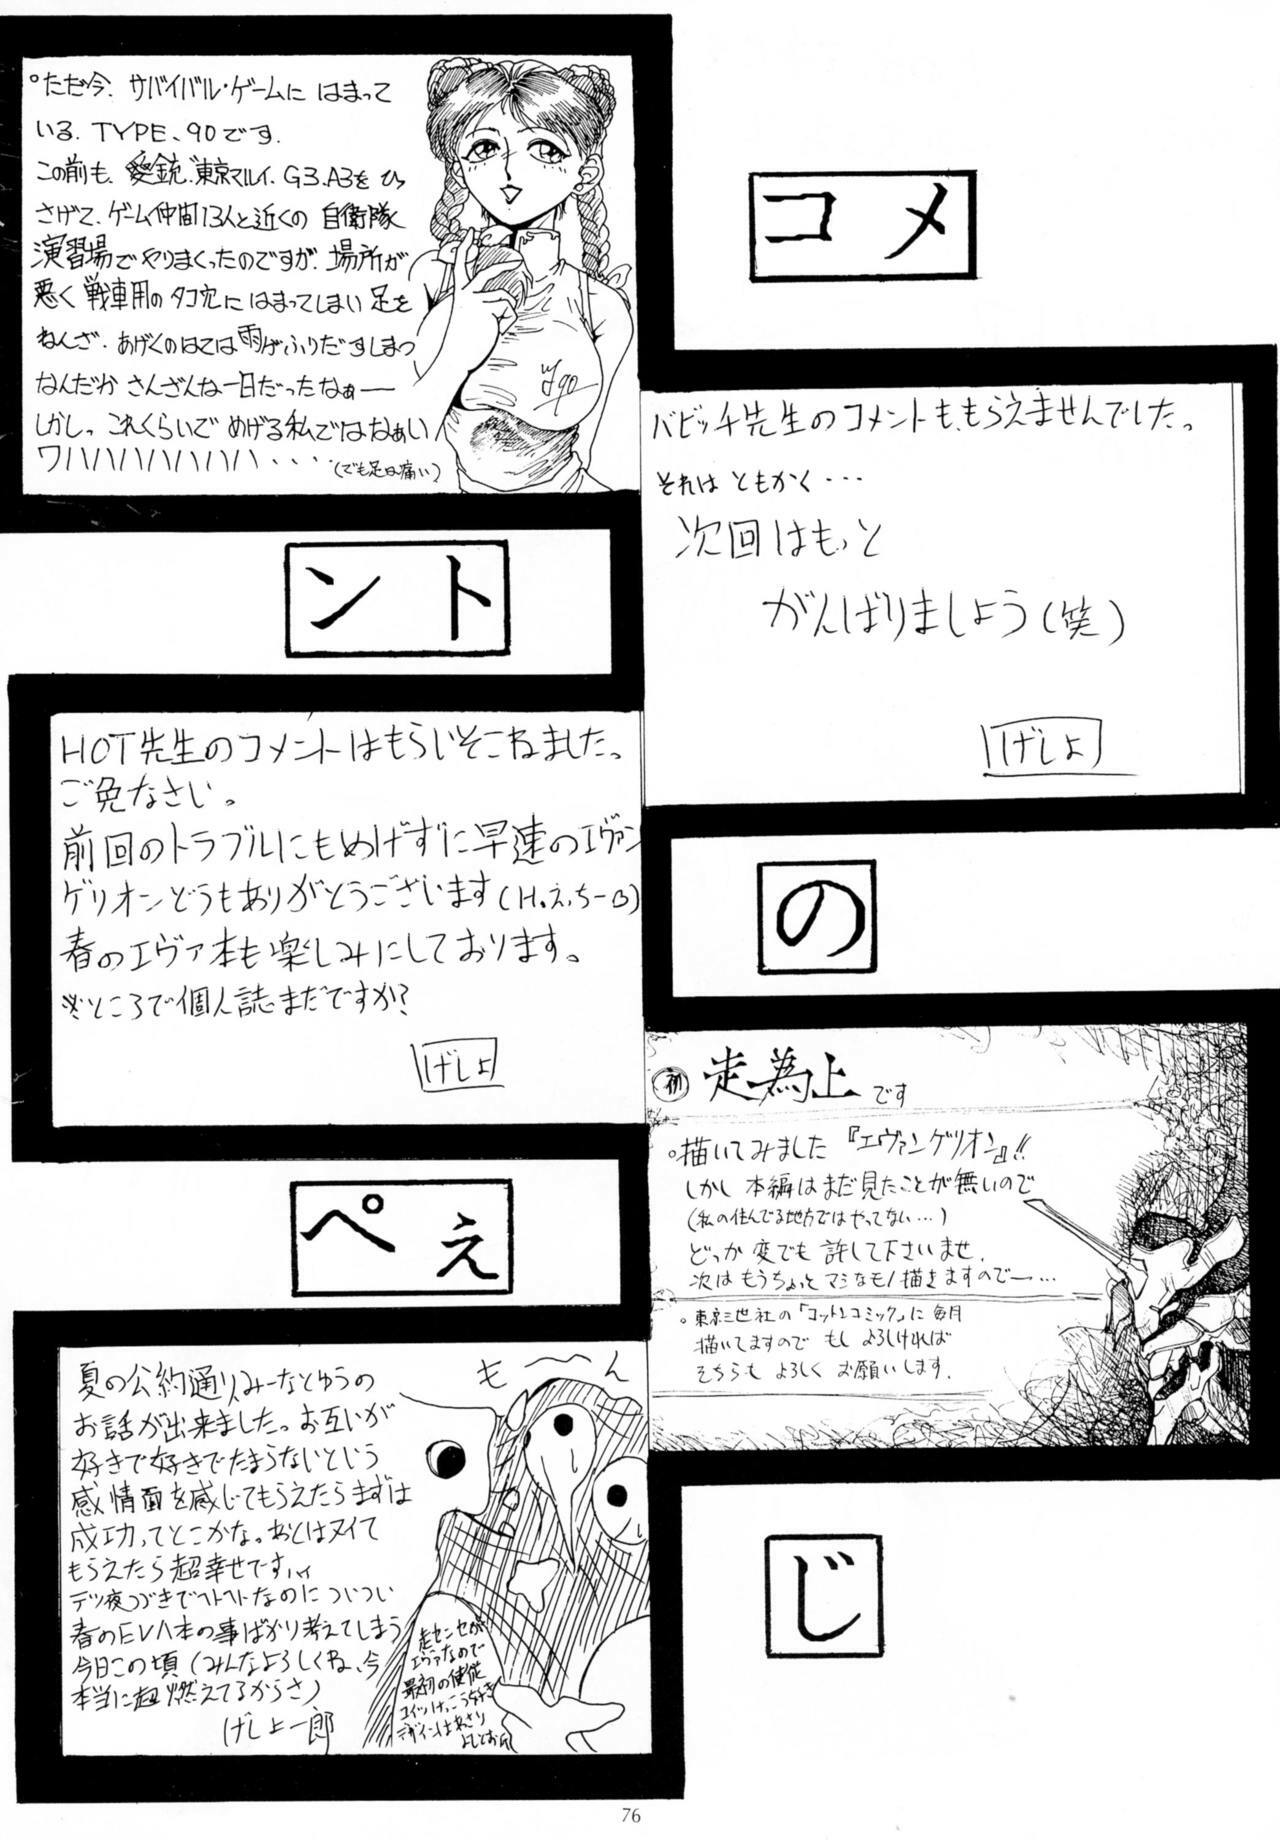 コメ
ント
の
ぺぇ
じ
°ただ今、サバイバル・ゲームに はまって
いる、TYPE、90です.
この前も、愛銃、東京マルイ、G3.A3を ひっ
さげて、ゲーム仲間13人と近くの 自衛隊
演習場でやりまくったのですが、場所が
悪く 戦車用のタコ穴に はまってしまい 足を
ねんざ、あげくのはては雨がふりだすしまつ
なんだか さんざんな一日だったなぁー
しかしっ これくらいで めげる私ではなぁい
ワハハハハハハハハ・・・・(でも足は痛い)
バビッチ先生のコメントも、もらえませんでした。
それは ともかく・・・
次回はもっと
がんばりましょう(笑)
げしょ
HOT先生のコメントはもらいそこねました。
ご免なさい。
前回のトラブルにもめげずに早速のエヴァン
ゲリオンどうもありがとうございます(H.え,ちーB)
春のエヴァ本も楽しみにしております。
※ところで個人誌まだですか?
げしょ
初 走為上 です
°描いてみました『エヴァンゲリオン』!!
しかし 本編はまだ見たことが無いので
(私の住んでる地方ではやってない…)
どっか 変でも 許して下さいませ.
次は もうちょっと マシなモノ描きますのでー…
°東京三世社の「コットンコミック」に 毎月
描いてますので もし よろしければ
そちらも よろしく お願いします.
夏の公約通りみーなとゆうの
お話が出来ました。お互いが
好きで好きでたまらないという
感情面を感じてもらえたらまずは
成功ってとこかな。あとはヌイて
もらえたら超幸せですハイ
テツ夜つづきでヘトヘトなのについつい
春のEVA本の事ばかり考えてしまう
今日この頃(みんなよろしくね、今
本当に超燃えてるからさ)
げしょ一郎
も〜ん
走センセが
エヴァなので
最初の使徒
コイツけっこう好き
デザインはあっさり
76